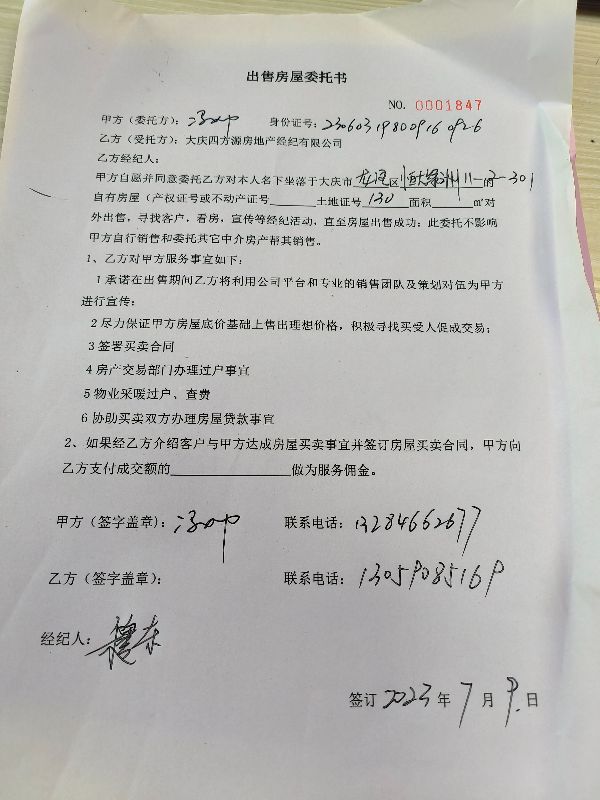 出售房屋委托书
NO. 0001847
甲方（委托方）： 身份证号：230603198009160926
乙方（受托方）：大庆四方源房地产经纪有限公司
乙方经纪人：
甲方自愿并同意委托乙方对本人名下坐落于大庆市 区 11-2-301的
自有房屋（产权证号或不动产证号______土地证号 130 面积______㎡对
外出售，寻找客户，看房，宣传等经纪活动，直至房屋出售成功；此委托不影响
甲方自行销售和委托其它中介房产帮其销售。
1、乙方对甲方服务事宜如下：
1 承诺在出售期间乙方将利用公司平台和专业的销售团队及策划对伍为甲方
进行宣传；
2 尽力保证甲方房屋底价基础上售出理想价格，积极寻找买受人促成交易；
3 签署买卖合同
4 房产交易部门办理过户事宜
5 物业采暖过户、查费
6 协助买卖双方办理房屋贷款事宜
2、如果经乙方介绍客户与甲方达成房屋买卖事宜并签订房屋买卖合同，甲方向
乙方支付成交额的________________做为服务佣金。
甲方（签字盖章）： 联系电话：13284662677
乙方（签字盖章）： 联系电话：13059085169
经纪人：
签订 2023 年 7 月 9 日